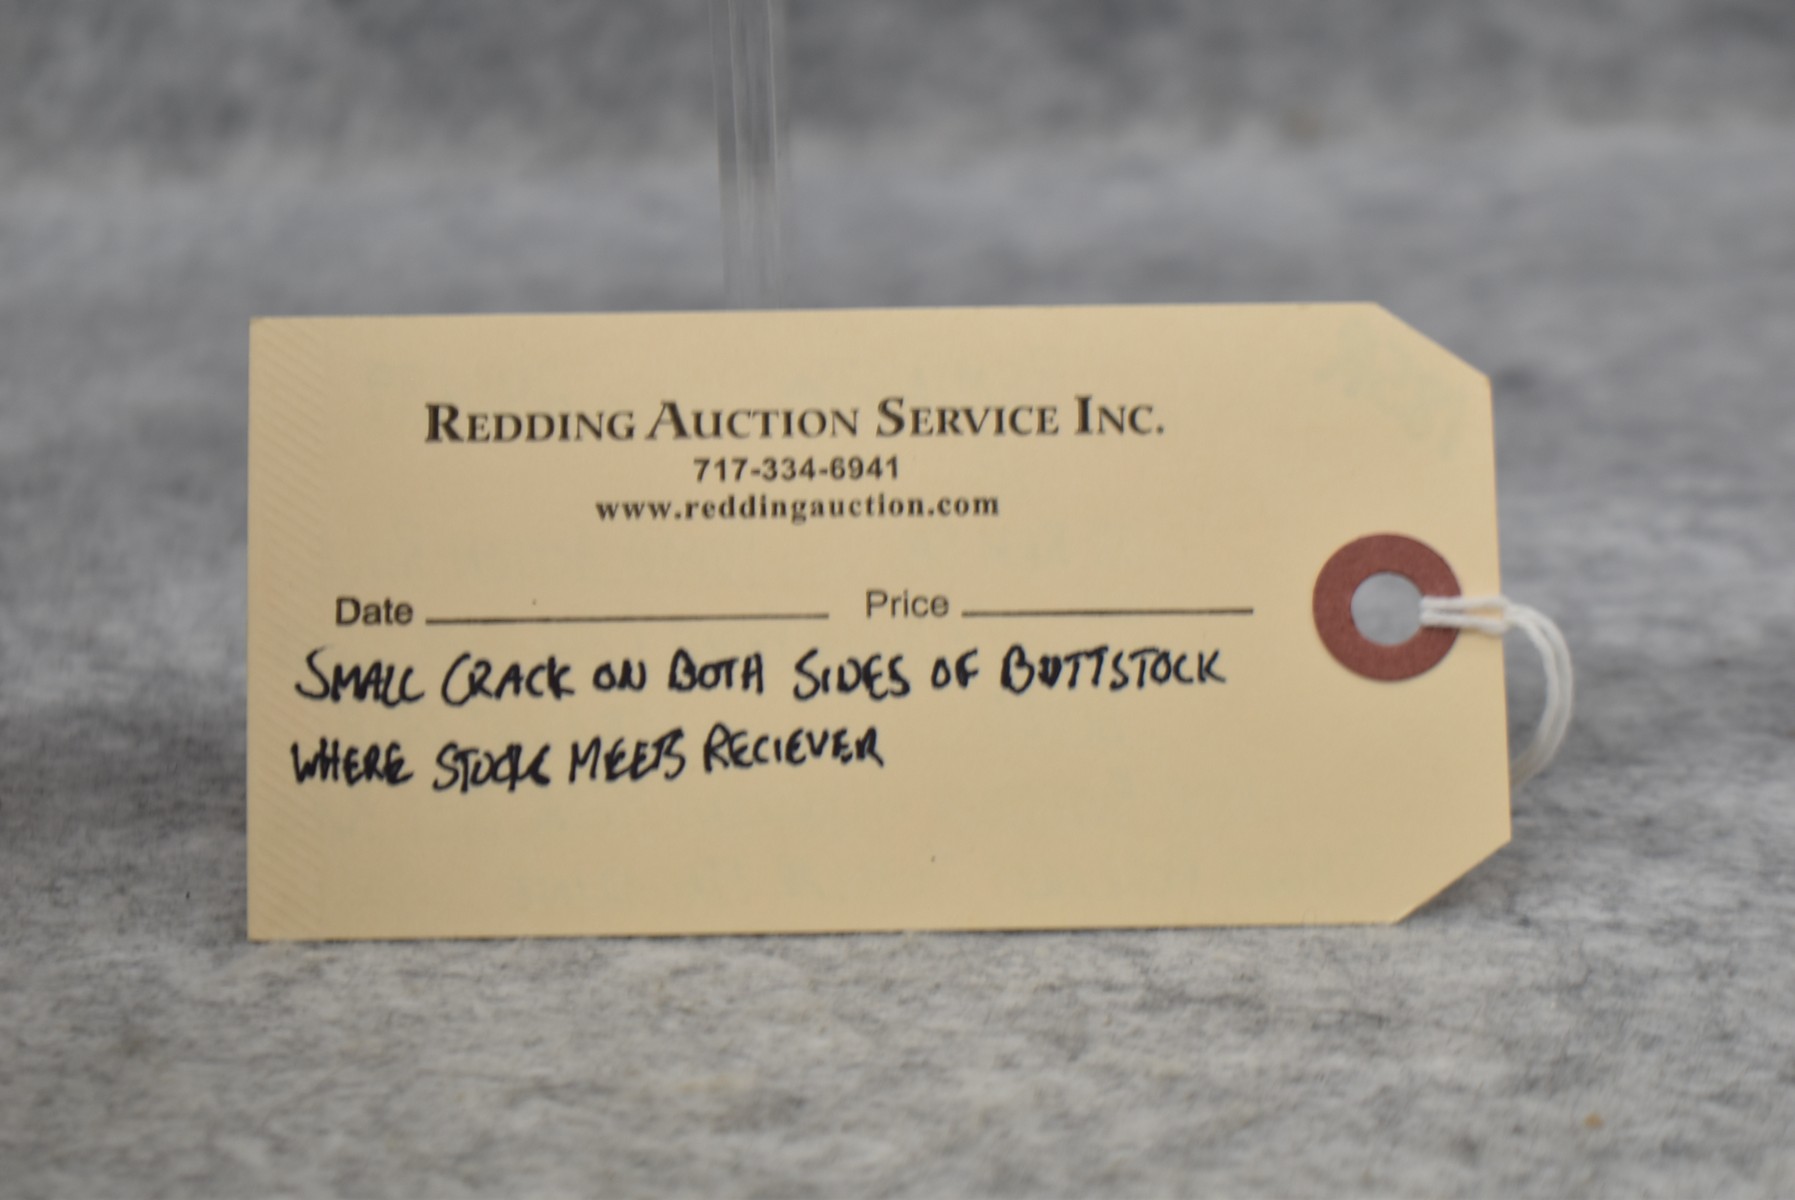 REDDING AUCTION SERVICE INC.
717-334-6941
www.reddingauction.com
Date Price
SMALL CRACK ON BOTH SIDES OF BUTTSTOCK
WHERE STOCK MEETS RECIEVER